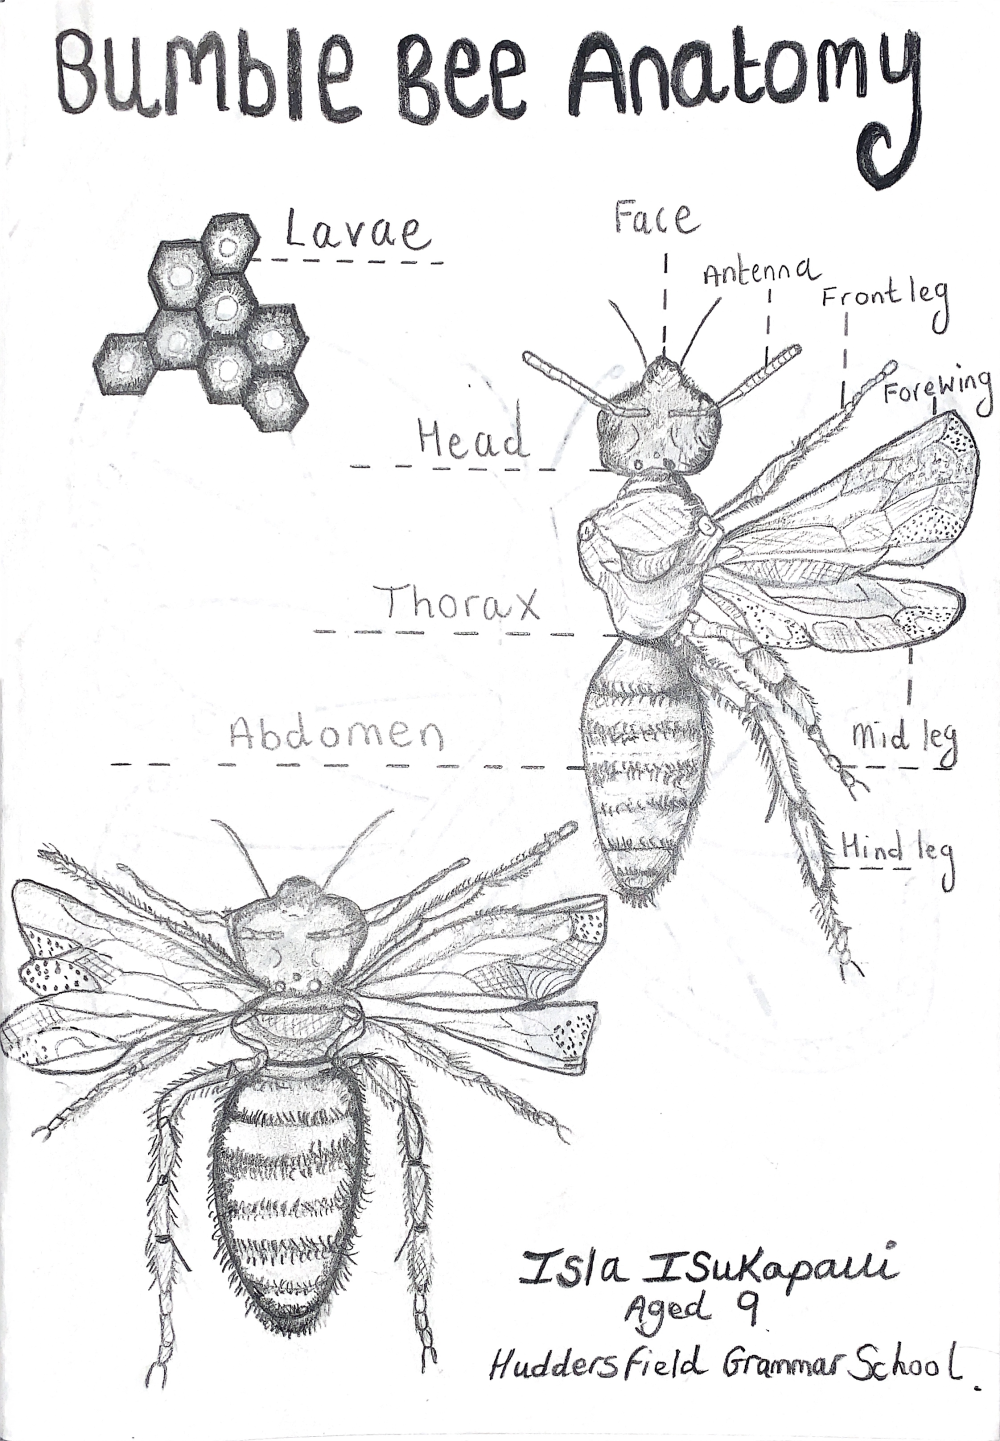 Bumble Bee Anatomy
Lavae
Face
Antenna
Front leg
Forewing
Head
Thorax
Abdomen
Mid leg
Hind leg
Isla Isukapalli
Aged 9
Huddersfield Grammar School.